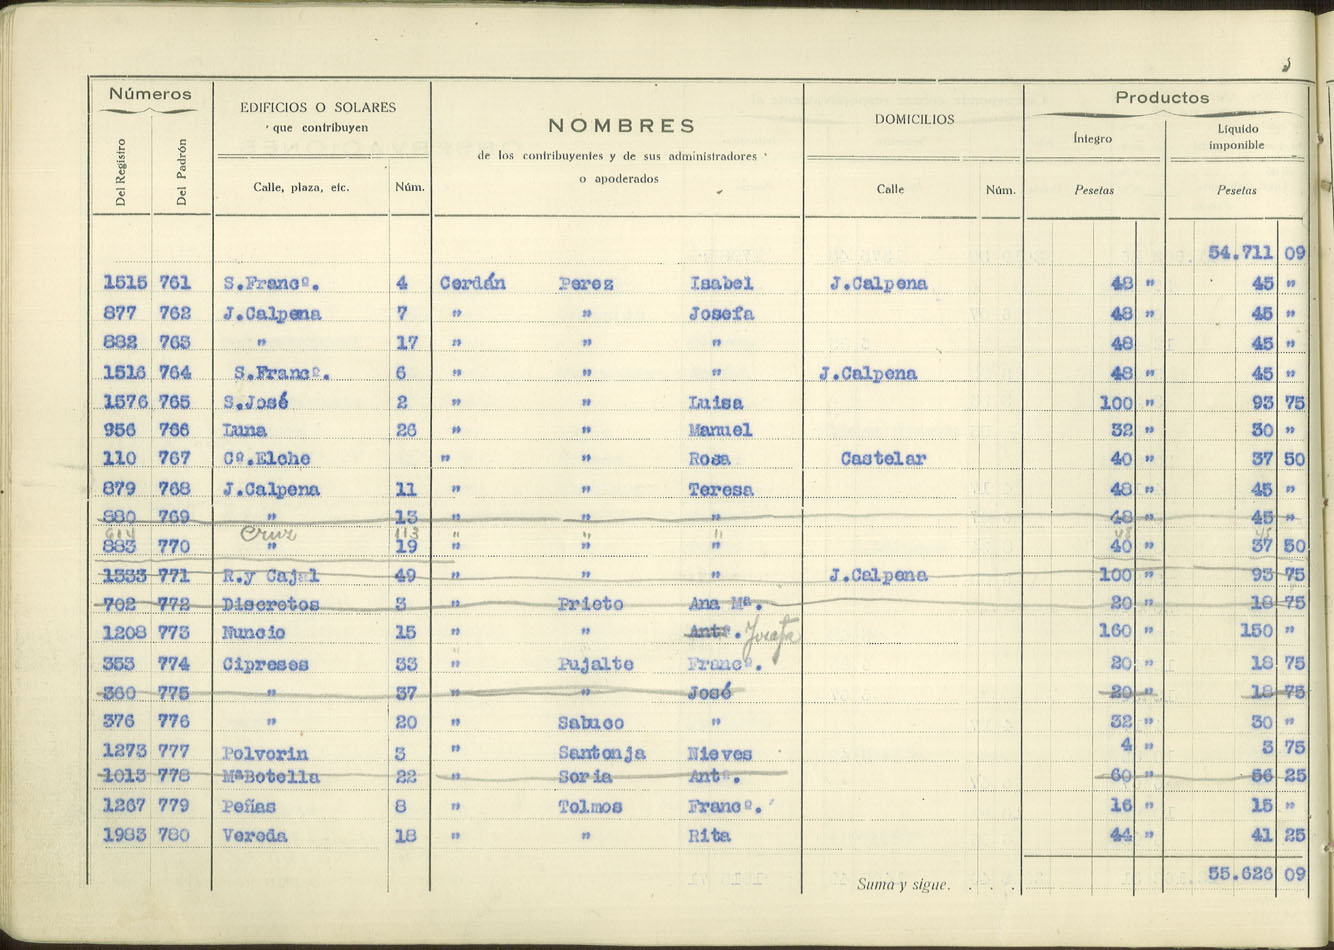 Números
EDIFICIOS O SOLARES
que contribuyen
NOMBRES
de los contribuyentes y de sus administradores
o apoderados
DOMICILIOS
Productos
Íntegro
Líquido
imponible
Del Registro
Del Padrón
Calle, plaza, etc.
Núm.
Calle
Núm.
Pesetas
Pesetas
54.711 09
1515 761 S.Francº. 4 Cerdán Perez Isabel J.Calpena 48 " 45 "
877 762 J.Calpena 7 " " Josefa 48 " 45 "
882 763 " 17 " " " 48 " 45 "
1516 764 S.Francº. 6 " " " J.Calpena 48 " 45 "
1576 765 S.José 2 " " Luisa 100 " 93 75
956 766 Luna 26 " " Manuel 32 " 30 "
110 767 Cº.Elche " " Rosa Castelar 40 " 37 50
879 768 J.Calpena 11 " " Teresa 48 " 45 "
880 769 " 13 " " " 48 " 45 "
614 Cruz 113 " " " 48 45
883 770 " 19 " " " 40 " 37 50
1333 771 R.y Cajal 49 " " " J.Calpena 100 " 93 75
702 772 Discretos 3 " Prieto Ana Mª. 20 " 18 75
1208 773 Nuncio 15 " " Antª. Josefa 160 " 150 "
353 774 Cipreses 33 " Pujalte Francº. 20 " 18 75
360 775 " 37 " " José 20 " 18 75
376 776 " 20 " Sabuco " 32 " 30 "
1273 777 Polvorin 3 " Santonja Nieves 4 " 3 75
1013 778 MªBotella 22 " Soria Antª. 60 " 56 25
1267 779 Peñas 8 " Tolmos Francº. 16 " 15 "
1983 780 Vereda 18 " " Rita 44 " 41 25
Suma y sigue. . . . 55.626 09